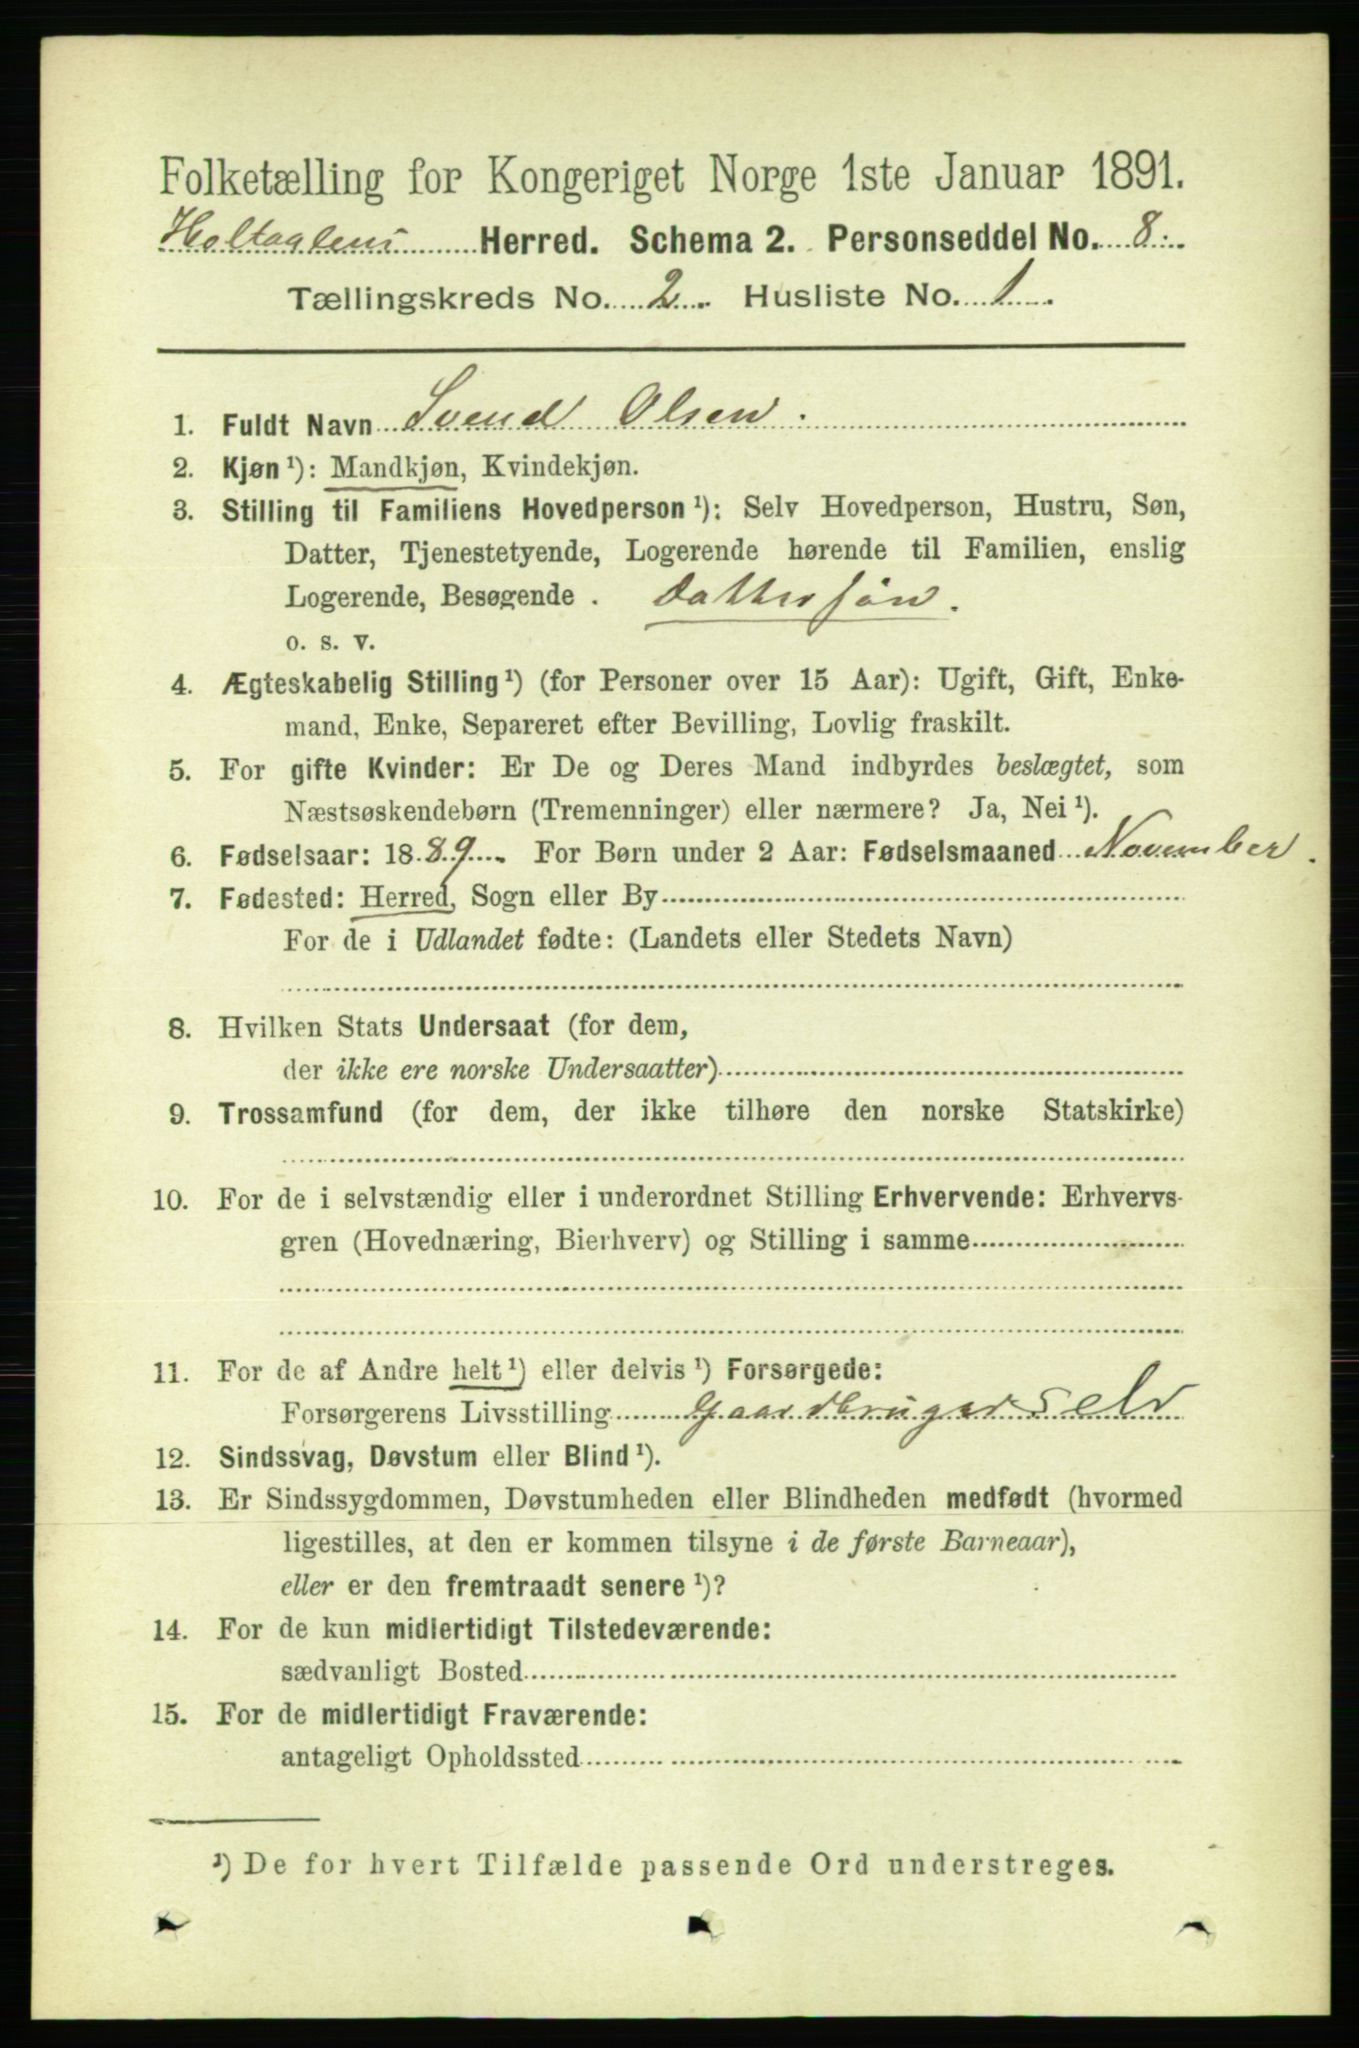 Folketælling for Kongeriget Norge 1ste Januar 1891.
Holtaalens Herred. Schema 2. Personseddel No. 8.
Tællingskreds No. 2. Husliste No. 1.
1. Fuldt Navn Svend Olsen.
2. Kjøn ¹): Mandkjøn, Kvindekjøn.
3. Stilling til Familiens Hovedperson ¹): Selv Hovedperson, Hustru, Søn,
Datter, Tjenestetyende, Logerende hørende til Familien, enslig
Logerende, Besøgende . Dattersøn.
o. s. v.
4. Ægteskabelig Stilling ¹) (for Personer over 15 Aar): Ugift, Gift, Enke-
mand, Enke, Separeret efter Bevilling, Lovlig fraskilt.
5. For gifte Kvinder: Er De og Deres Mand indbyrdes beslægtet, som
Næstsøskendebørn (Tremenninger) eller nærmere? Ja, Nei ¹).
6. Fødselsaar: 1889. For Børn under 2 Aar: Fødselsmaaned November.
7. Fødested: Herred, Sogn eller By
For de i Udlandet fødte: (Landets eller Stedets Navn)
8. Hvilken Stats Undersaat (for dem,
der ikke ere norske Undersaatter)
9. Trossamfund (for dem, der ikke tilhøre den norske Statskirke)
10. For de i selvstændig eller i underordnet Stilling Erhvervende: Erhvervs-
gren (Hovednæring, Bierhverv) og Stilling i samme
11. For de af Andre helt ¹) eller delvis ¹) Forsørgede:
Forsørgerens Livsstilling Gaardbruger selv
12. Sindssvag, Døvstum eller Blind ¹).
13. Er Sindssygdommen, Døvstumheden eller Blindheden medfødt (hvormed
ligestilles, at den er kommen tilsyne i de første Barneaar),
eller er den fremtraadt senere ¹)?
14. For de kun midlertidigt Tilstedeværende:
sædvanligt Bosted
15. For de midlertidigt Fraværende:
antageligt Opholdssted
¹) De for hvert Tilfælde passende Ord understreges.